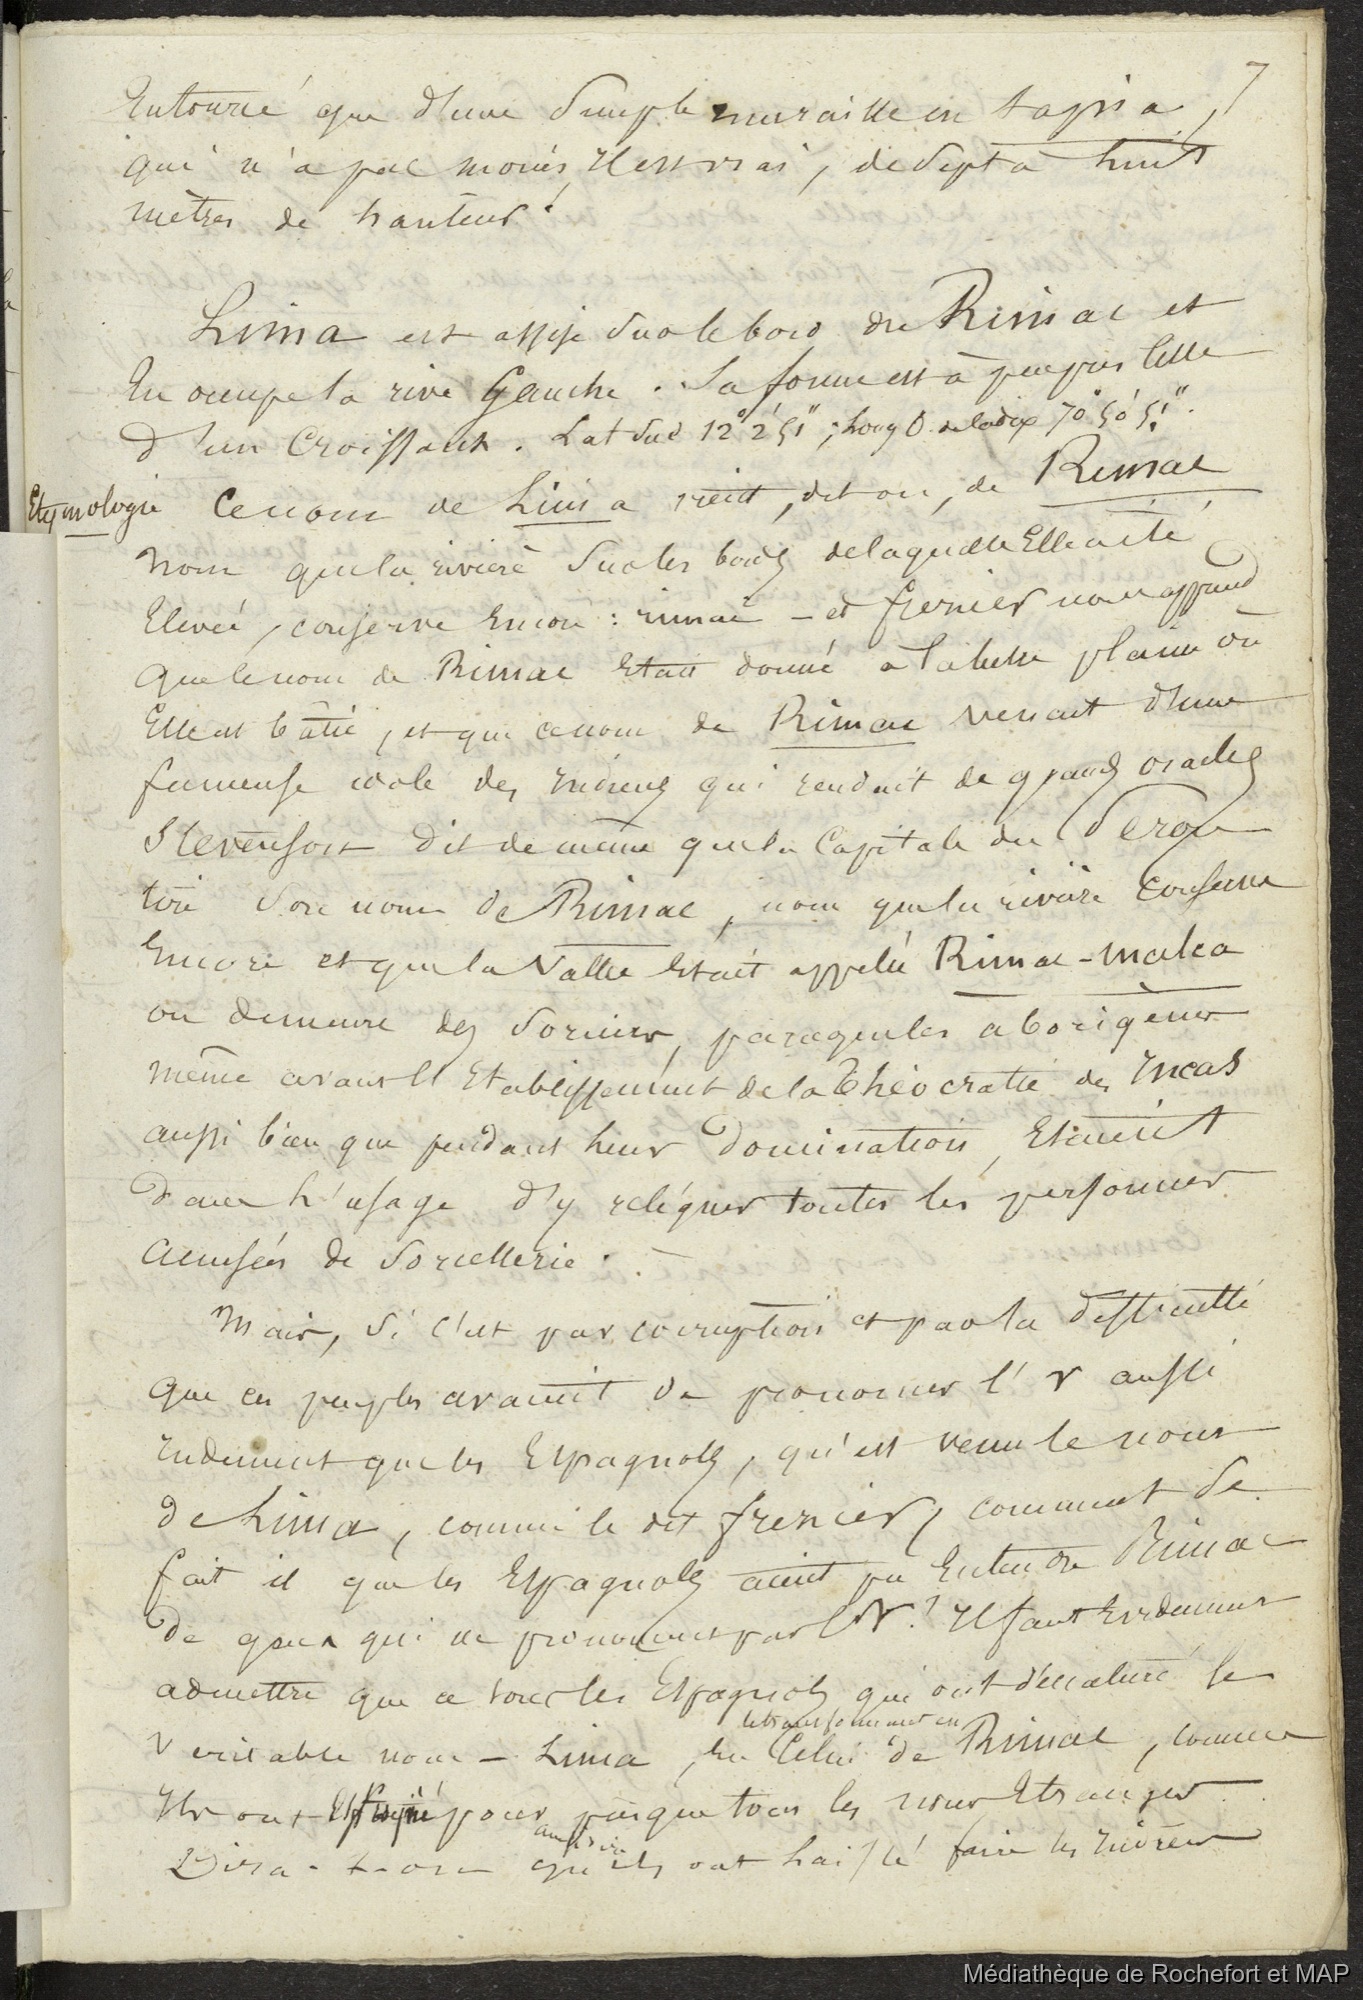 7
Entouré que d'une Simple muraille en tapia,
qui n'a pas moins, il est vrai, de Sept à huit
mètres de hauteur.
Lima est assise Sur le bord du Rimac et
En occupe la rive Gauche. Sa forme est à peu près celle
d'un Croissant. Lat Sud 12° 2' 51"; Long O. 70° 50' 51".
Etymologie
Ce nom de Lima vient, dit on, de Rimac
Nom que la rivière Sur les bords de laquelle Elle a été
Elevée, conserve Encore : rimac - et frezier nous apprend
que le nom de Rimac Etait donné à la belle plaine où
Elle est bâtie, et que ce nom de Rimac venait d'une
fameuse idole des Indiens qui rendait de grands oracles
Stevenson dit de même que la Capitale du Perou
tire Son nom de Rimac, nom que la rivière conserve
Encore et que la Vallée Etait appelée Rimac-malca
ou demeure des Sorciers, parceque les aborigènes
même avant l'Etablissement de la théocratie des Incas
aussi bien que pendant leur Domination, Etaient
dans l'usage d'y reléguer toutes les personnes
accusées de Sorcellerie.
Mais, Si c'est par corruption et par la difficulté
que ces peuples avaient de prononcer l'r aussi
rudement que les Espagnols, qu'est venu le nom
de Lima, comme le dit frezier, comment Se
fait il que les Espagnols aient pu Entendre Rimac
de gens qui ne prononcent pas l'R? Il faut Evidemment
admettre que ce Sont les Espagnols qui ont dénaturé le
le transformant en
Veritable nom - Lima, En Celui de Rimac, comme
Ils ont pour presque tous les noms Etrangers.
Dira-t-on qu'ils ont laissé faire les Indiens